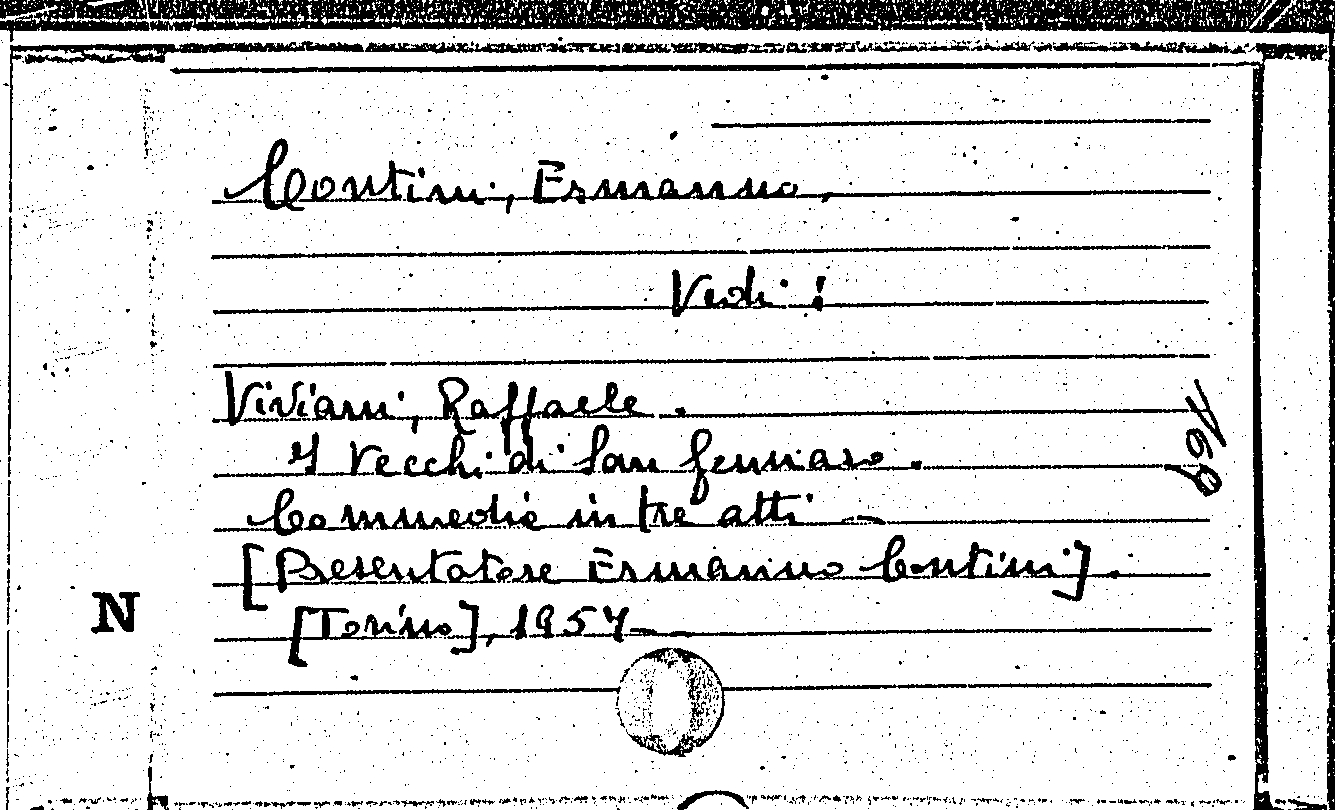 Contini, Ermanno,
Vedi :
Viviani, Raffaele .
I Vecchi di San Gennaro .
Commedie in tre atti -
[Presentatore Ermanno Contini] .
N
[Torino], 1957-